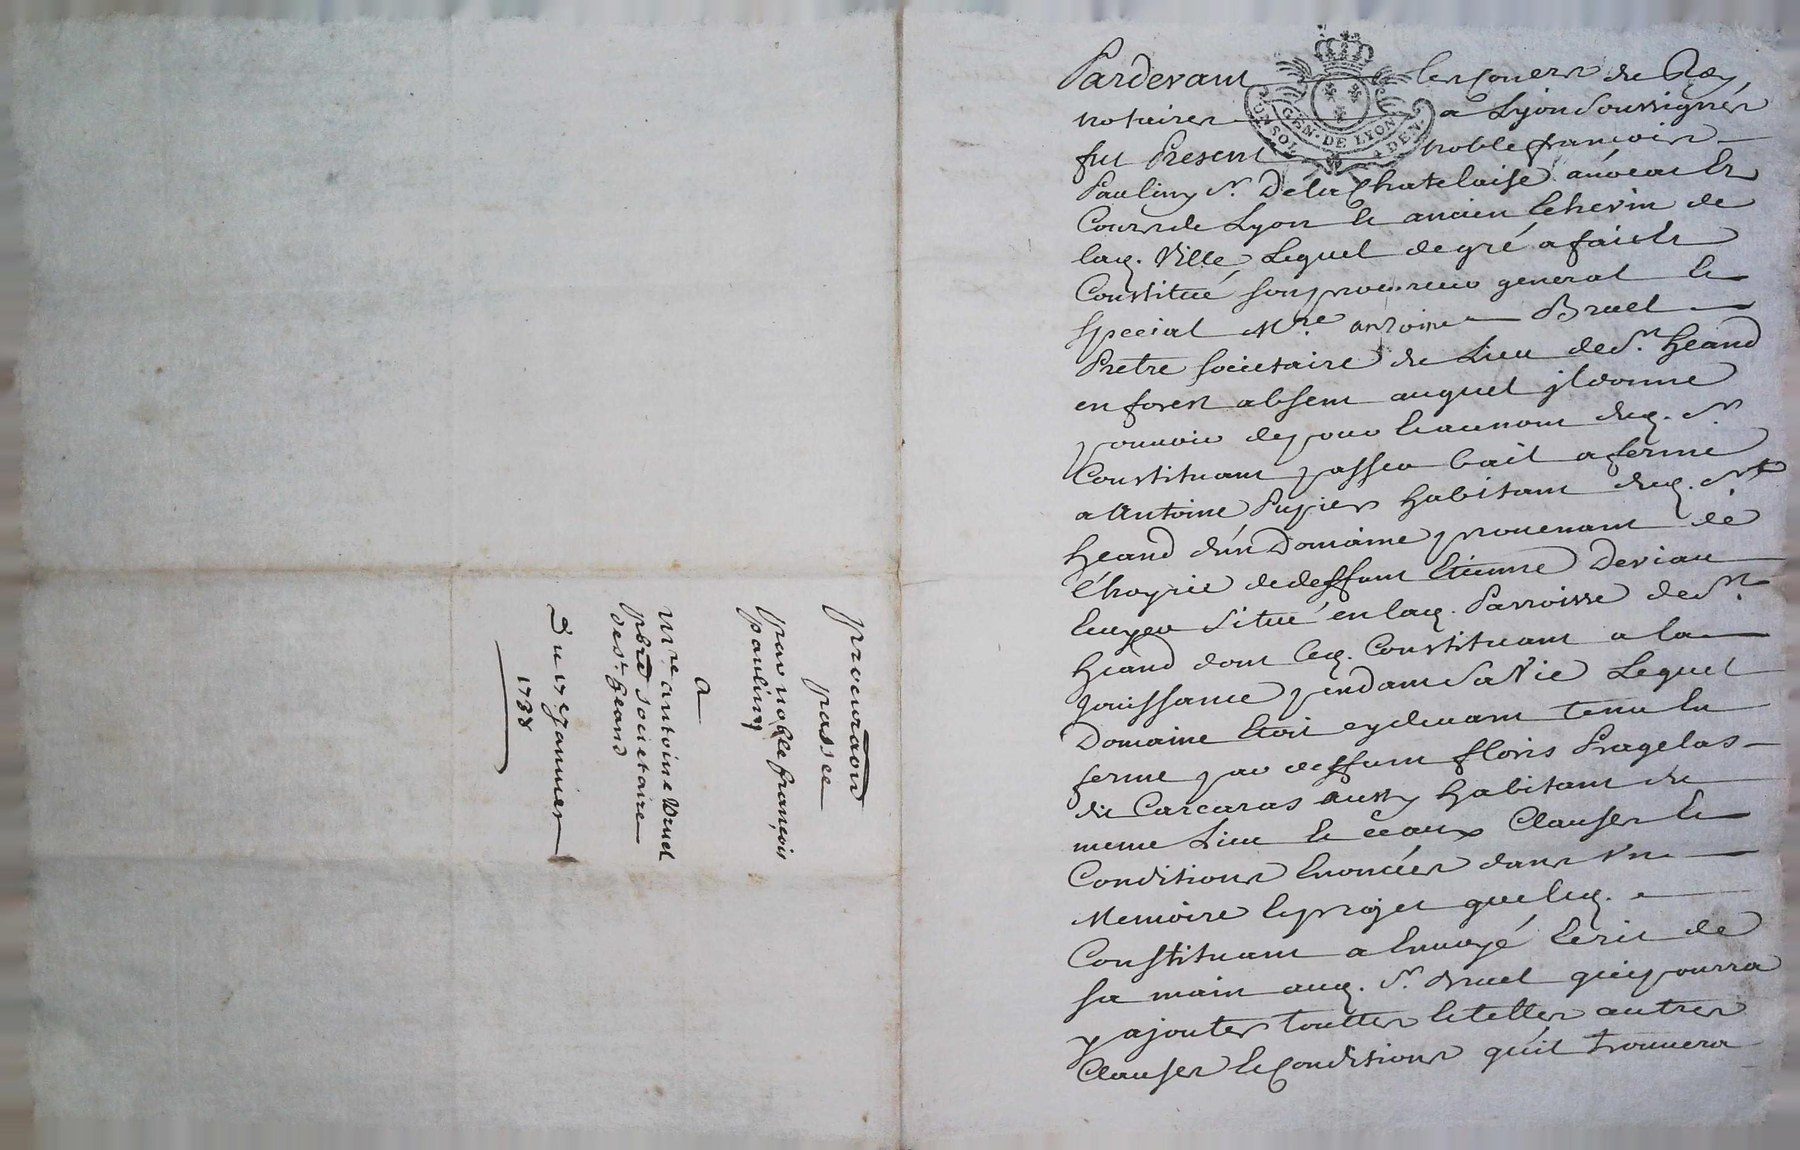 procuration
passée
par noble françois
pauliny
a
Mre antoine Bruel
pbre societaire
de st heand
Du 17e Januier
1738
GEN. DE LYON
UN SOL 4 DEN.
Pardevant les Coners du Roy
notaires a Lyon Soussignés
fut Present noble françois
Pauliny Sr. De la Chatelaise avocat Es
Cours de Lyon Et ancien Echevin de
lad. Ville Lequel de gré a fait Et
Constitué son procureur general Et
Special Mre. antoine Bruel
Pretre societaire du Lieu de St. heand
en forest absent auquel jl donne
pouuoir de pour Et au nom dud. Sr
Constituant passer bail a ferme
a Antoine Pupier habitant dud. St
heand d'un Domaine prouenant de
l'hoyrie de deffunt Etienne Deviau
Ecuyer Situé en lad. Parroisse de St.
heand dont led. Constituant a la
Jouissance pendant Sa Vie Lequel
Domaine Etoit cydeuant tenu En
ferme par deffunt floris Pragelas
dit Carcaras aussy habitant du
meme Lieu Et ce aux Clauses Et
Conditions Enoncées dans Vn
Memoire Et projet que led.
Constituant a Enuoyé Ecrit de
sa main aud. Sr. Bruel qui pourra
y ajouter touttes Et telles autres
Clauses Et Conditions qu'il trouuera